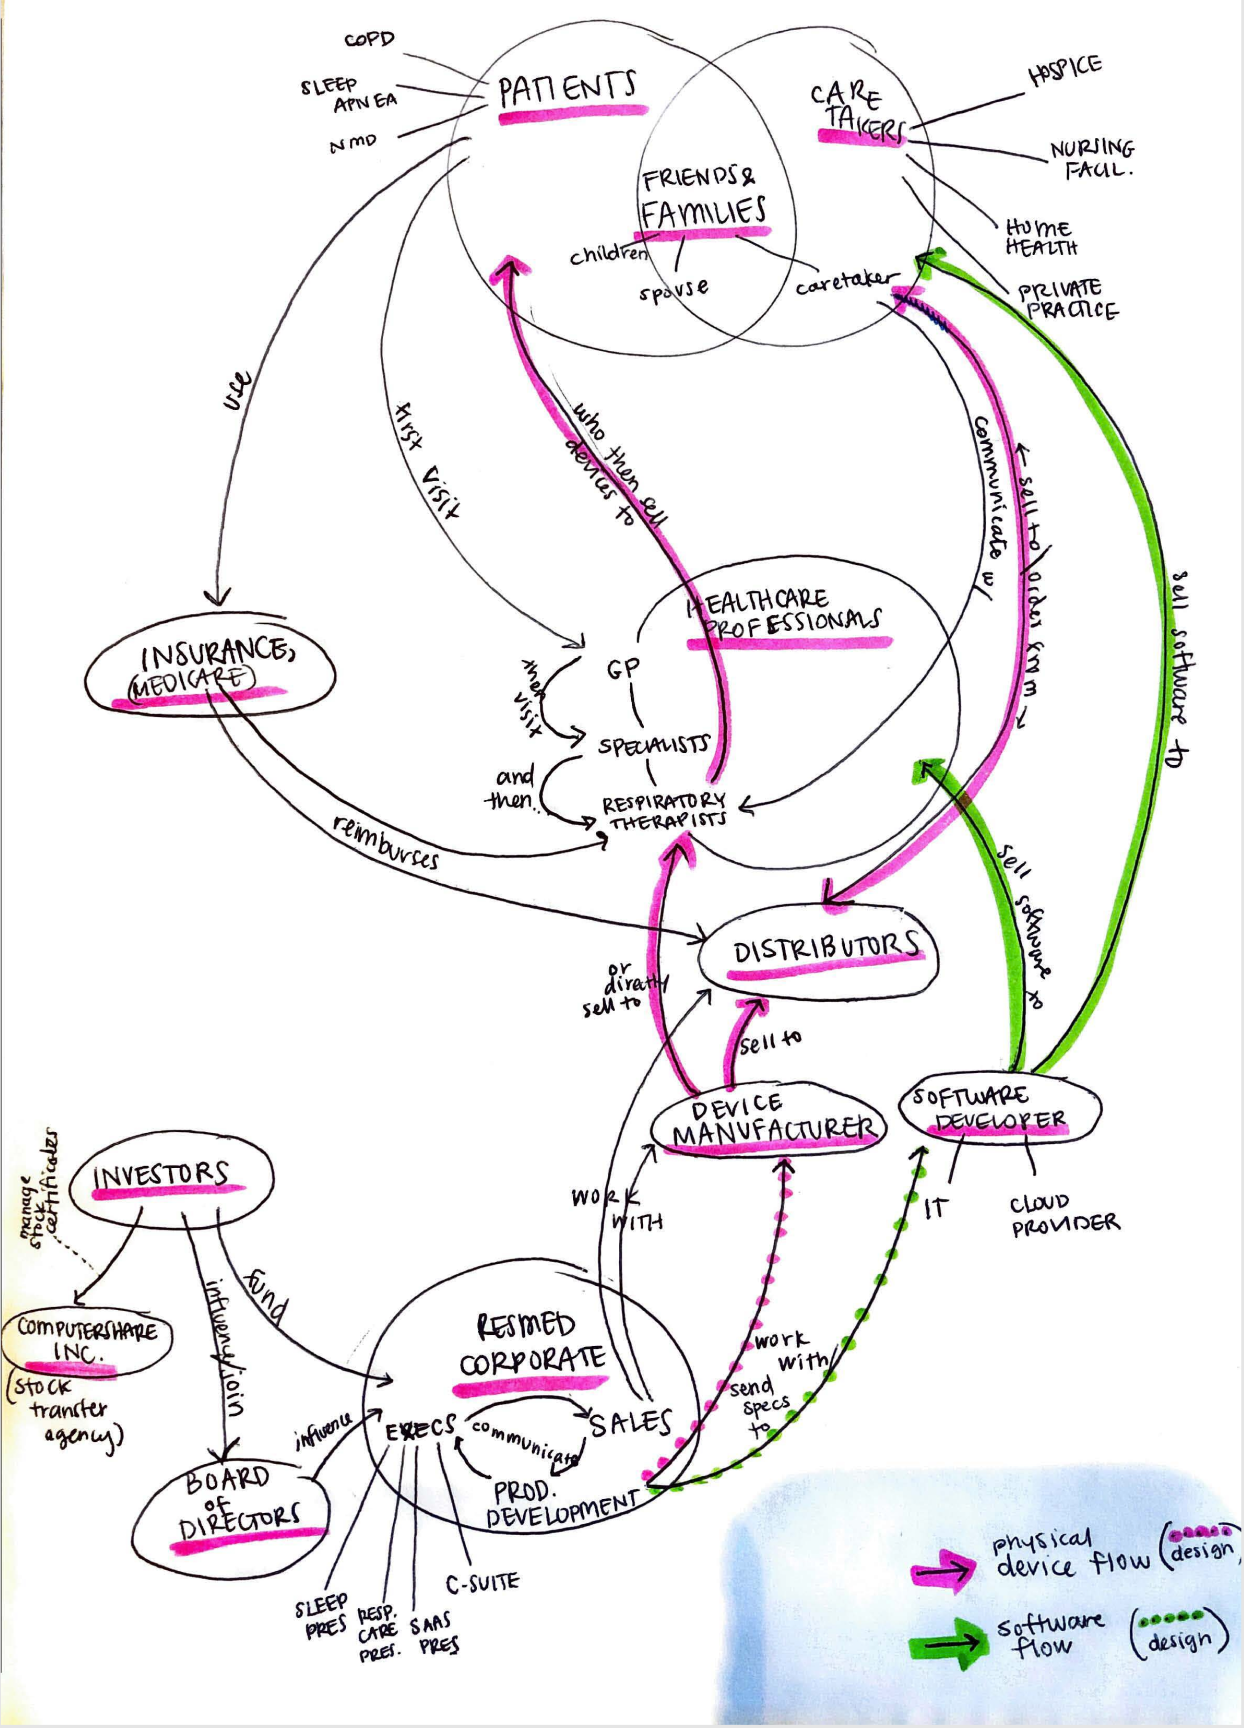 COPD
SLEEP
APNEA
NMD
PATIENTS
CARE
TAKERS
HOSPICE
NURSING
FACIL.
HOME
HEALTH
PRIVATE
PRACTICE
FRIENDS &
FAMILIES
children
spouse
caretaker
use
first visit
who then sell
devices to
communicate w/
← sell to / order from →
sell software to
HEALTHCARE
PROFESSIONALS
INSURANCE,
(MEDICARE)
GP
then
visit
SPECIALISTS
and
then..
RESPIRATORY
THERAPISTS
reimburses
sell software to
DISTRIBUTORS
or
directly
sell to
sell to
DEVICE
MANUFACTURER
SOFTWARE
DEVELOPER
IT
CLOUD
PROVIDER
INVESTORS
manage
stock
certificates
WORK
WITH
fund
influence/join
COMPUTERSHARE
INC.
(stock
transfer
agency)
RESMED
CORPORATE
EXECS
communicate
SALES
PROD.
DEVELOPMENT
influence
BOARD
OF
DIRECTORS
work
with/
send
specs
to
SLEEP
PRES
RESP.
CARE
PRES.
SAAS
PRES
C-SUITE
physical
device flow
(design)
software
flow
(design)